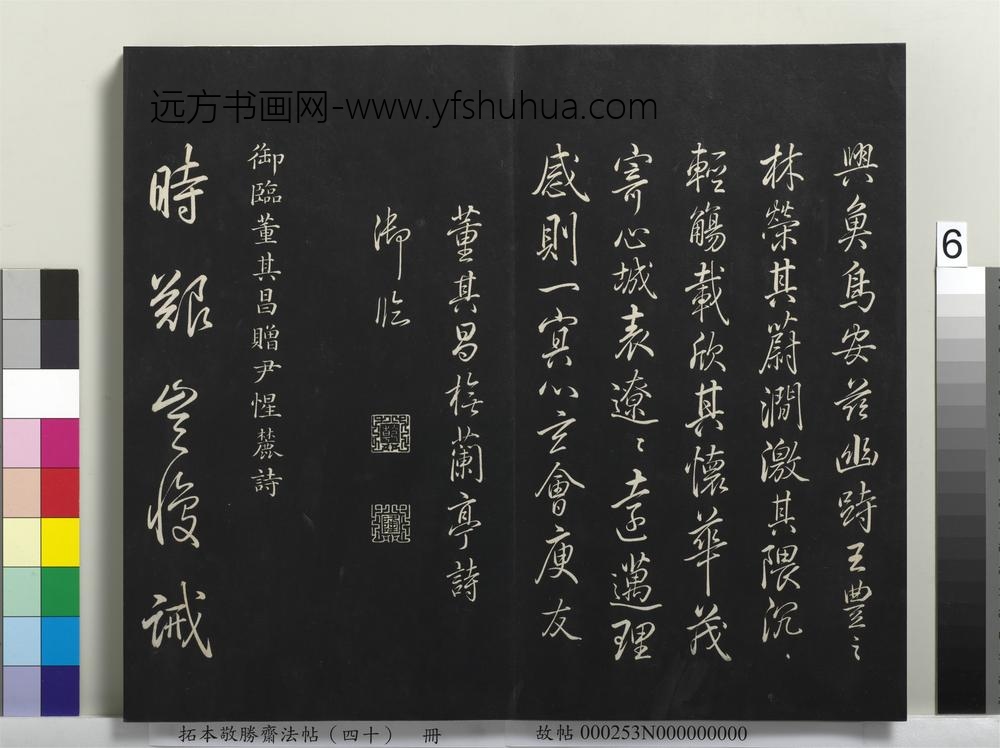 远方书画网-www.yfshuhua.com
興魚鳥安茲幽跱王豊之
林榮其蔚澗激其隈沉、
輕觴載欣其懷華茂
寄心城表遼〻遠邁理
感則一冥心玄會庾友
董其昌楷蘭亭詩
御臨
御臨董其昌贈尹惺麓詩
時艱
誡
6
拓本敬勝齋法帖(四十) 冊
故帖 000253N000000000